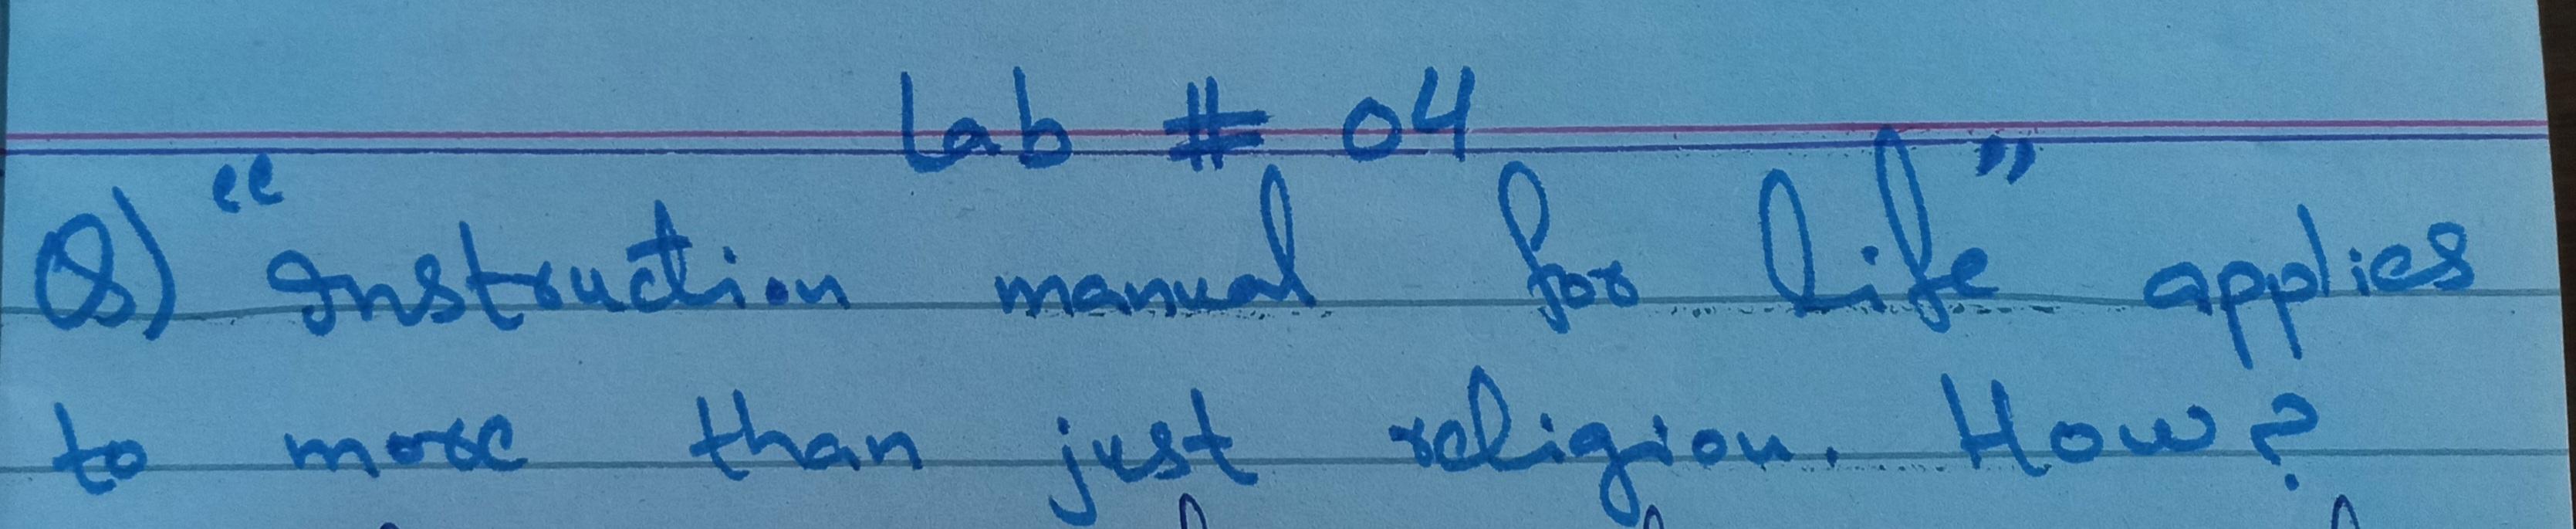 Lab # 04
Q) "Instruction manual for life" applies
to more than just religion. How?